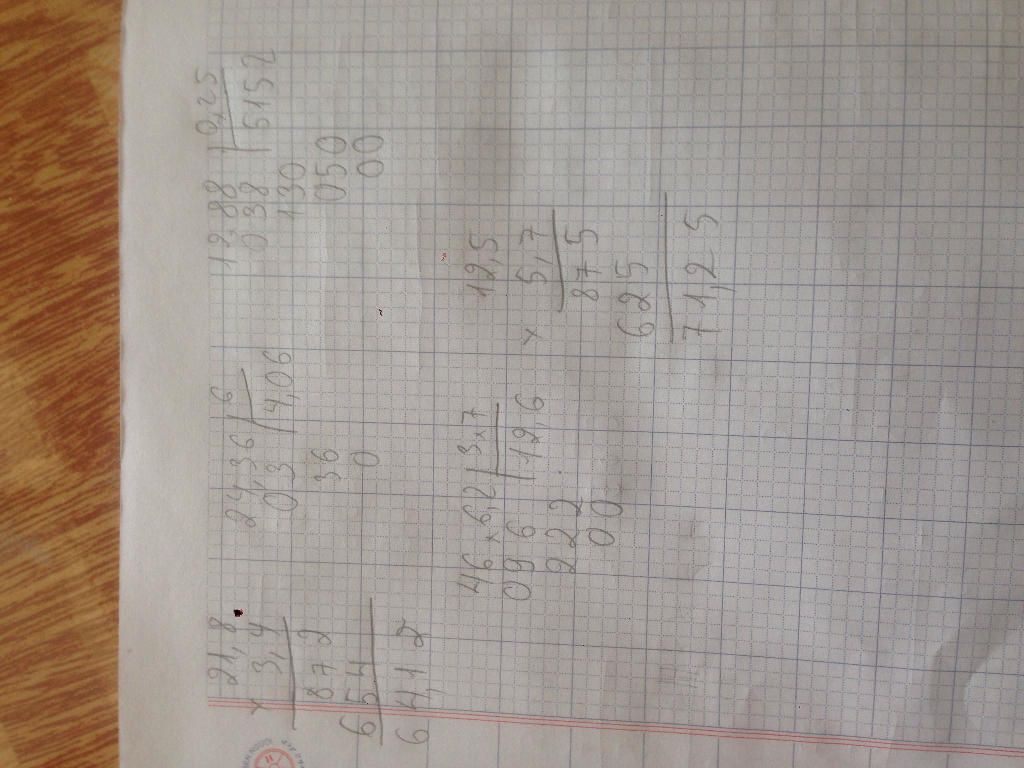 21,8 24,36 | 6 12,88 | 0,25
× 3,4 0,3 | 4,06 038 | 5152
872 36 130
654 0 050
64,12 00
46×6,2 | 3×7 12,5
096 | 12,6 × 5,7
222 875
00 625
71,25